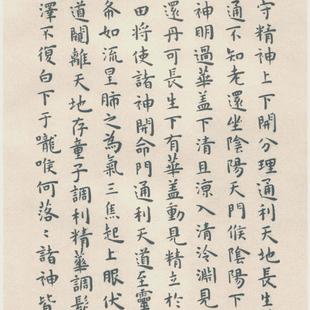 守精神上下開分理通利天地長生
通不知老還坐陰陽天門候陰陽下
神明過華蓋下清且涼入清泠淵見
還丹可長生下有華盖動見精立於
田將使諸神開命門通利天道至靈
如流星肺之為氣三焦起上服伏
道闚離天地存童子調利精華調髮
澤不復白下于嚨喉何落〻諸神皆